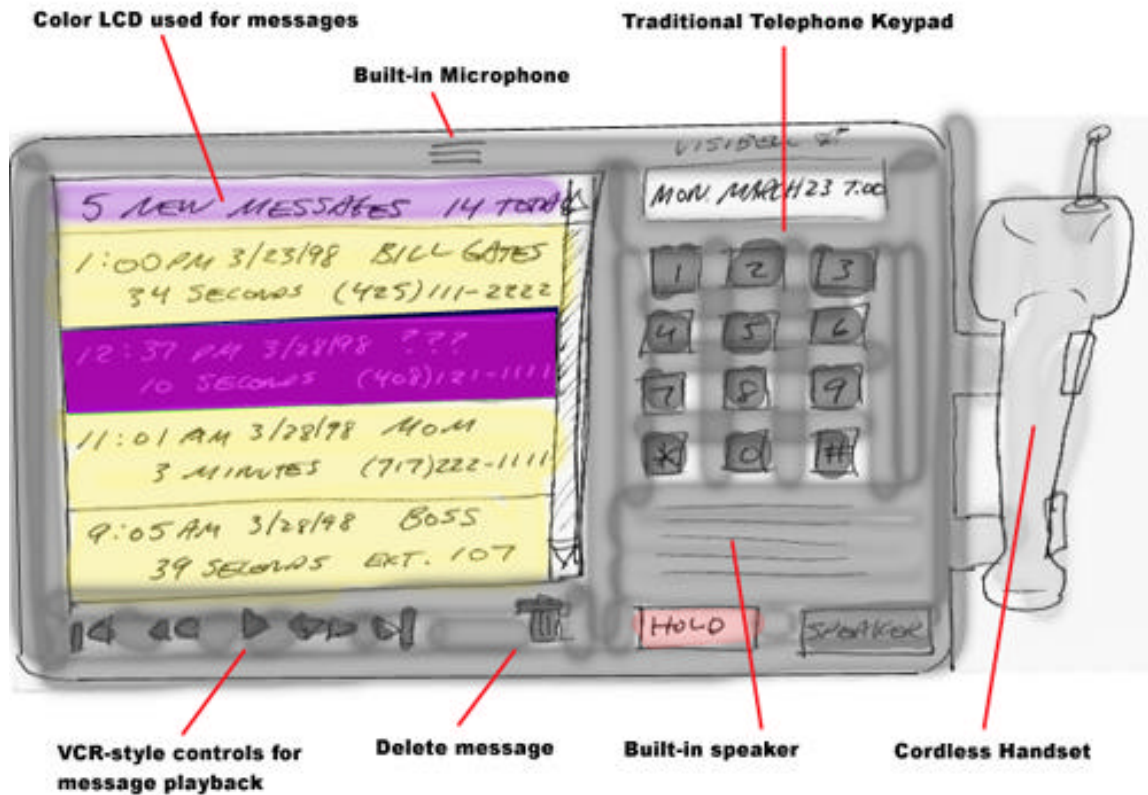 Color LCD used for messages
Traditional Telephone Keypad
Built-in Microphone
VISIBELL
5 NEW MESSAGES 14 TOTAL
MON. MARCH 23 7:00
1:00 PM 3/23/98 BILL GATES
34 SECONDS (425)111-2222
12:37 PM 3/28/98 ???
10 SECONDS (408)121-1111
11:01 AM 3/28/98 MOM
3 MINUTES (717)222-1111
9:05 AM 3/28/98 BOSS
39 SECONDS EXT. 107
1 2 3
4 5 6
7 8 9
* 0 #
HOLD
SPEAKER
VCR-style controls for
message playback
Delete message
Built-in speaker
Cordless Handset